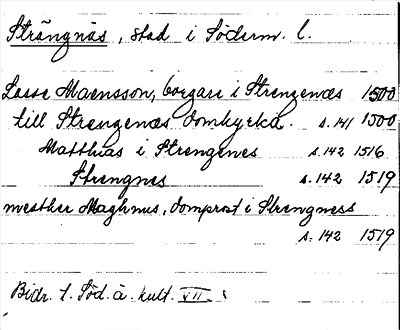 Strängnäs, stad i Söderm. l.
Lasse Maensson, borgare i Strengenæs 1500
till Strengenæs domkyrka. s. 141 1500
Matthias i Strengenes s. 142 1516
Strengnes s. 142 1519
mesther Maghnus, domprost i Strengness
s. 142 1519
Bidr. t. Söd. ä. kult. VII